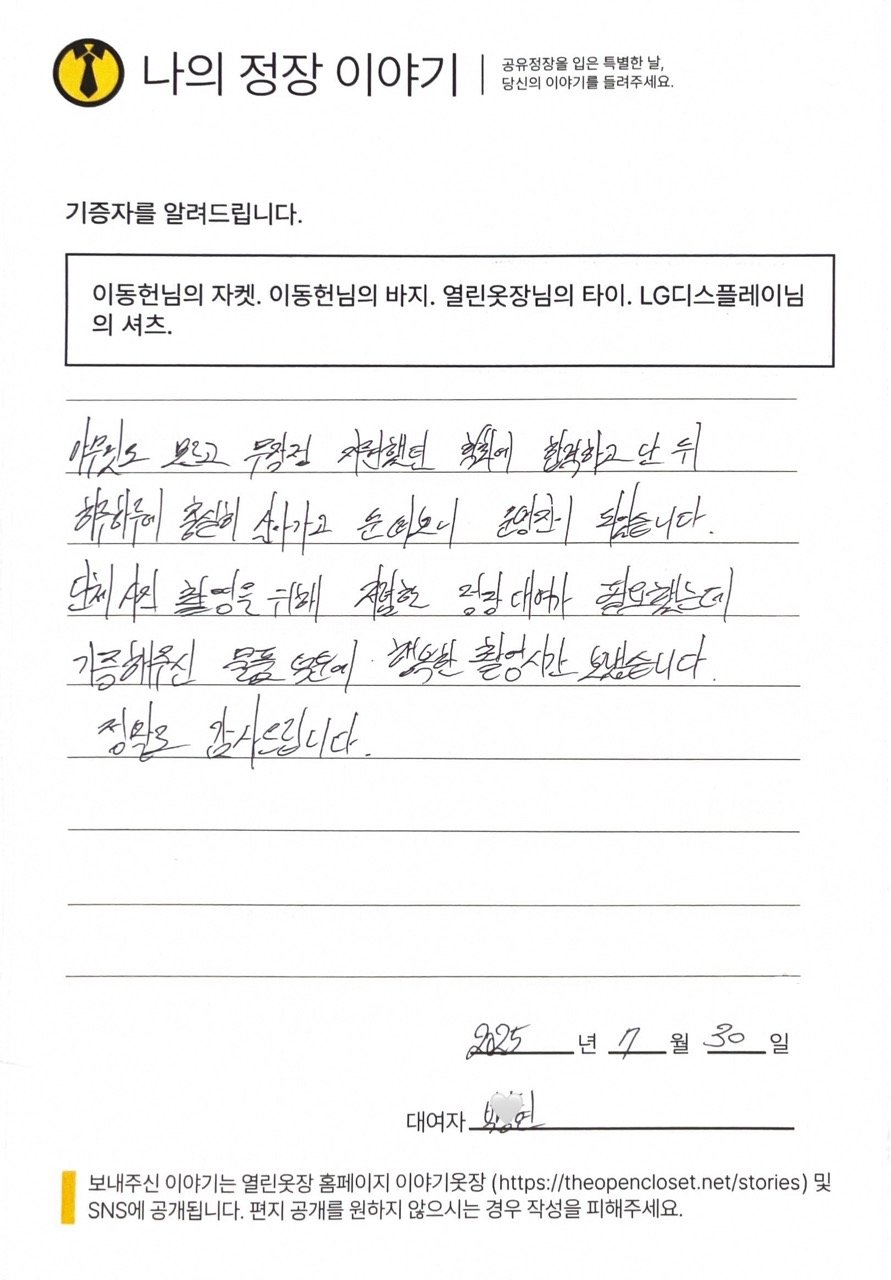 나의 정장 이야기
공유정장을 입은 특별한 날,
당신의 이야기를 들려주세요.
기증자를 알려드립니다.
이동헌님의 자켓. 이동헌님의 바지. 열린옷장님의 타이. LG디스플레이님
의 셔츠.
아무것도 모르고 무작정 지원했던 학회에 합격하고 난 뒤
하루하루에 충실히 살아가고 눈 떠보니 운영진이 되었습니다.
단체 사진 촬영을 위해 저렴한 정장 대여가 필요했는데
기증해주신 물품 덕분에 행복한 촬영시간 보냈습니다.
정말로 감사드립니다.
2025 년 7 월 30 일
대여자
보내주신 이야기는 열린옷장 홈페이지 이야기옷장 (https://theopencloset.net/stories) 및
SNS에 공개됩니다. 편지 공개를 원하지 않으시는 경우 작성을 피해주세요.